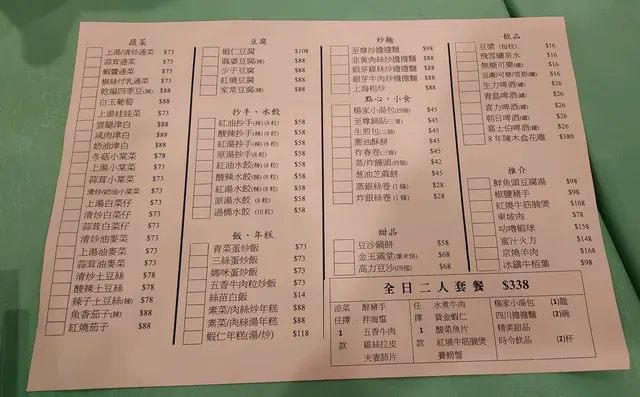 蔬菜
上湯/清炒通菜 $73
蒜茸通菜 $73
蝦醬通菜 $73
椒絲付乳通菜 $73
乾煸四季豆(辣) $88
白玉葡萄 $88
上湯娃娃菜 $73
雲腿津白 $88
咸肉津白 $88
奶油津白 $88
冬菇小棠菜 $78
上湯小棠菜 $73
蒜茸小棠菜 $73
清炒/奶油小棠菜 $73
上湯白菜仔 $73
清炒白菜仔 $73
蒜茸白菜仔 $73
清炒油麥菜 $73
上湯油麥菜 $73
蒜茸油麥菜 $73
清炒土豆絲 $78
酸辣土豆絲 $78
辣子土豆絲(辣) $78
魚香茄子(辣) $88
紅燒茄子 $88
豆腐
蝦仁豆腐 $108
麻婆豆腐(辣) $88
少子豆腐 $88
紅燒豆腐 $88
家常豆腐(辣) $88
抄手、水餃
紅油抄手(辣) (8 粒) $58
酸辣抄手(辣) (8 粒) $58
紅湯抄手(辣) (8 粒) $58
原湯抄手 (8 粒) $58
紅油水餃(辣) (8 粒) $58
酸辣水餃(辣) (8 粒) $58
紅湯水餃(辣) (8 粒) $58
原湯水餃 (8 粒) $58
過橋水餃 (10 粒) $58
飯、年糕
青菜蛋炒飯 $73
三絲蛋炒飯 $73
媽咪蛋炒飯 $73
五香牛肉粒炒飯 $73
絲苗白飯 $14
素菜/肉絲炒年糕 $88
素菜/肉絲湯年糕 $88
蝦仁年糕(湯/炒) $118
炒麵
至尊炒擔擔麵 $98
韭黃肉絲炒擔擔麵 $88
銀芽雞絲炒擔擔麵 $88
銀芽牛肉炒擔擔麵 $88
上海粗炒 $88
點心、小食
楊家小湯包(四個) $45
至尊鍋貼(三個) $45
生煎包(三個) $45
蔥油酥餅 $45
炸春卷(三條) $45
蒸/炸饅頭(四個) $42
葱油芝麻餅 $45
蒸銀絲卷 (1 條) $28
炸銀絲卷 (1 條) $28
甜品
豆沙鍋餅 $58
金玉滿堂(粟米烙) $68
高力豆沙(四個) $68
飲品
豆漿 (每枝) $16
飛雪礦泉水 $16
無糖可樂(罐) $16
忌廉/可樂/雪碧(罐) $16
生力啤酒(罐) $26
青島啤酒(罐) $26
喜力啤酒(罐) $26
朝日啤酒(罐) $26
嘉士伯啤酒(罐) $26
8 年陳木盒花雕 $380
推介
鮮魚頭豆腐湯 $98
椒鹽豬手 $98
紅燒牛筋腩煲 $108
東坡肉 $78
咕嚕蝦球 $158
蜜汁火方 $148
京燒羊肉 $168
冰鎮牛栢葉 $98
全日二人套餐 $338
涼菜任擇1款
醉豬手
拌海蜇
五香牛肉
雞絲拉皮
夫妻肺片
任擇1款
水煮牛肉
黃金蝦仁
酸菜魚片
紅燒牛筋腩煲
賽螃蟹
楊家小湯包 (1)籠
四川擔擔麵 (2)碗
精美甜品
時令飲品 (2)杯